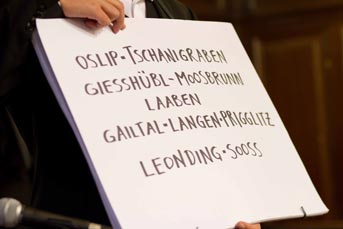 OSLIP·TSCHANIGRABEN
GIESSHÜBL-MOOSBRUNN
LAABEN
GAILTAL-LANGEN-PRIGGLITZ
LEONDING·SOOSS